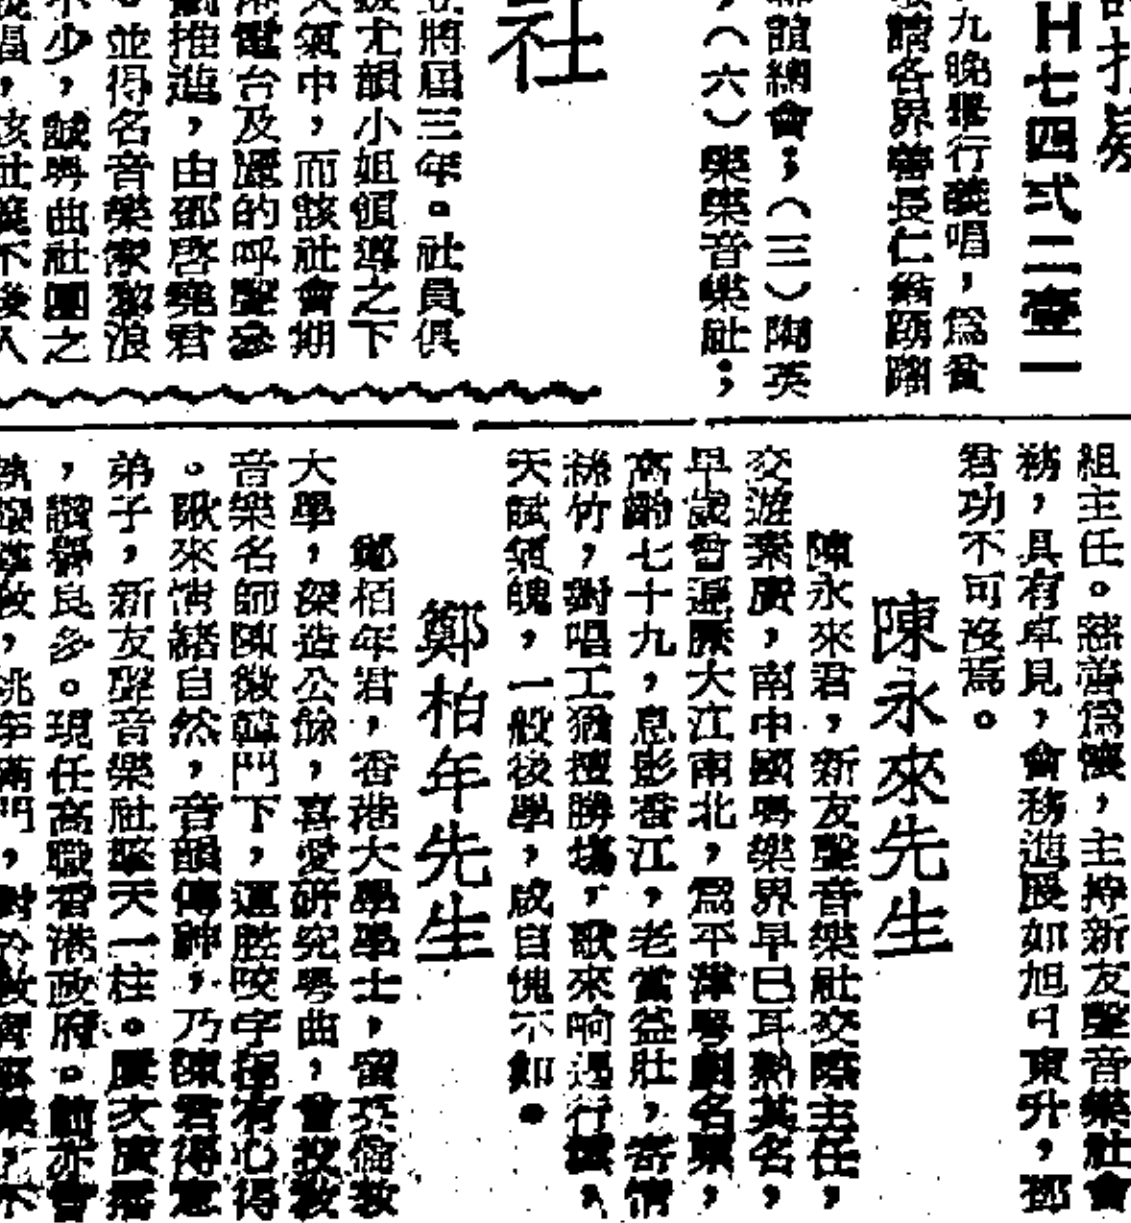 H七四弍二壹一
九晚舉行義唱，爲貧
請各界善長仁翁踴躍
聯誼總會；（三）陶英
，（六）樂樂音樂社；
社
將屆三年。社員俱
尤韻小姐領導之下
氣中，而該社會期
電台及麗的呼聲參
推進，由鄧啓堯君
。並得名音樂家
少，誠粵曲社團之
唱，該社
組主任。慈善爲懷，主持新友聲音樂社會
務，具有卓見，會務進展如旭日東升，鄧
君功不可沒焉。
陳永來先生
陳永來君，新友聲音樂社交際主任，
交遊素廣，南中國粵樂界早已耳熱其名，
早歲曾遍歷大江南北，爲平津粵劇名票，
高齡七十九，息影香江，老當益壯，寄情
絲竹，對唱工猶擅勝塲，歌來响遏行雲，
天賦氣魄，一般後學，咸自愧不如。
鄭柏年先生
鄭栢年君，香港大學學士，留英倫敦
大學，深造公餘，喜愛研究粵曲，曾投敎
音樂名師陳徽韓門下，運腔咬字極有心得
。歌來情緒自然，音韻傳神，乃陳君得意
弟子，新友聲音樂社擎天一柱。屢次廣播
，讚譽良多。現任高職香港政府。
桃李滿門，對於